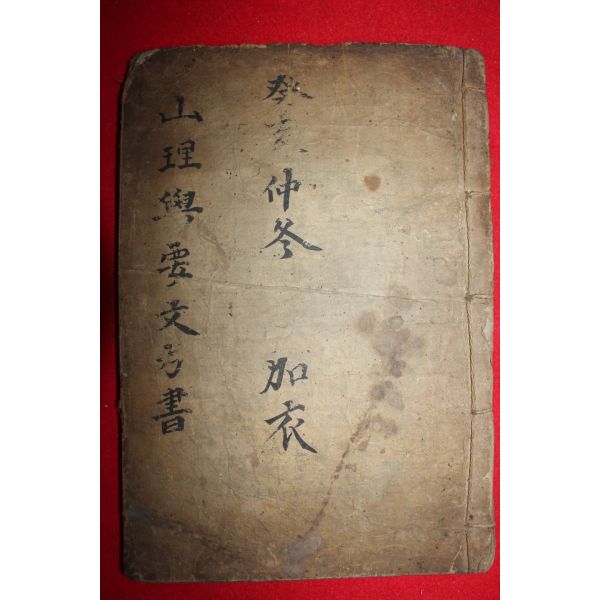 癸亥仲冬 加衣
山理與要文書